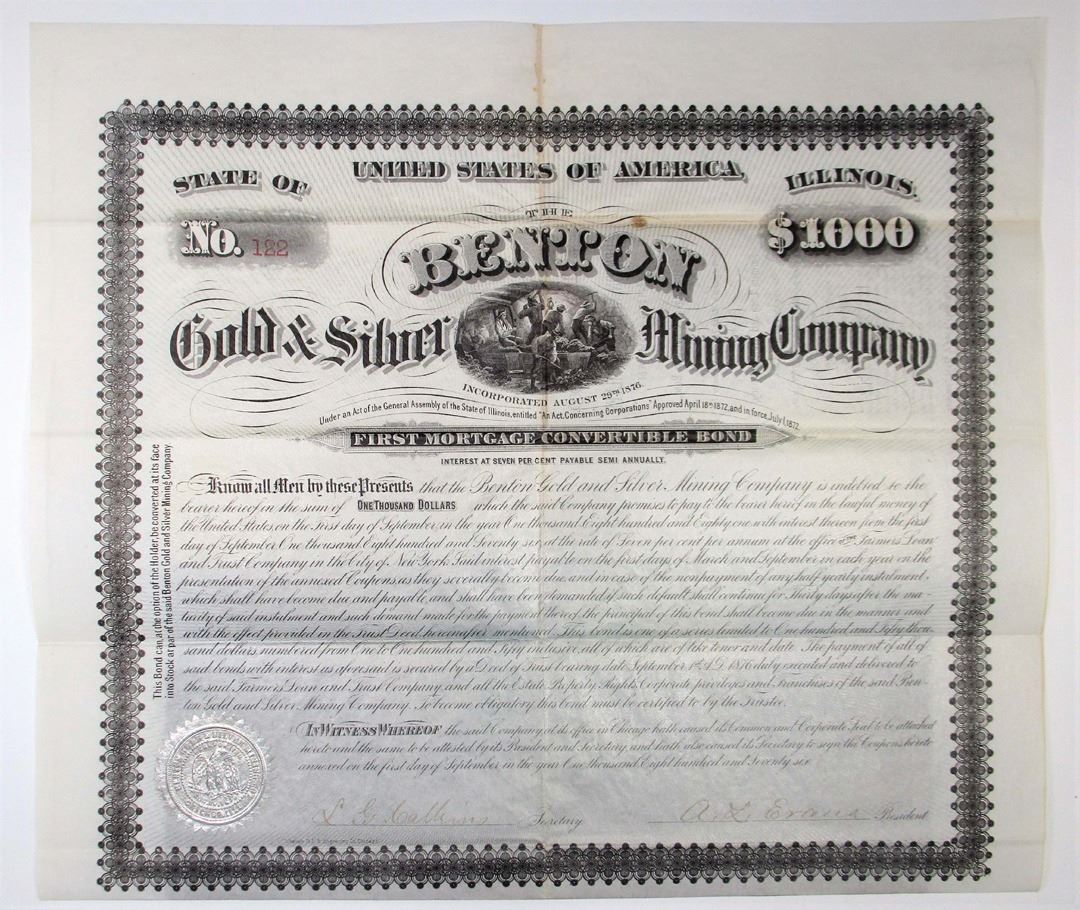 UNITED STATES OF AMERICA,
STATE OF ILLINOIS.
No. 122
$1000
THE
BENTON
Gold & Silver Mining Company
INCORPORATED AUGUST 29TH 1876.
Under an Act of the General Assembly of the State of Illinois, entitled "An Act, Concerning Corporations" Approved April 18th 1872, and in force July 1, 1872.
FIRST MORTGAGE CONVERTIBLE BOND
INTEREST AT SEVEN PER CENT PAYABLE SEMI ANNUALLY.
This Bond can, at the option of the Holder, be converted at its face
into Stock at par of the said Benton Gold and Silver Mining Company
Know all Men by these Presents that the Benton Gold and Silver Mining Company is indebted to the
bearer hereof in the sum of ONE THOUSAND DOLLARS which the said Company promises to pay to the bearer hereof in the lawful money of
the United States on the first day of September, in the year One thousand Eight hundred and Eighty one with interest thereon from the first
day of September One thousand Eight hundred and Seventy six, at the rate of Seven per cent per annum at the office of the Farmers Loan
and Trust Company in the City of New York. Said interest payable on the first days of March and September in each year on the
presentation of the annexed Coupons as they severally become due and in case of the nonpayment of any half yearly instalment,
which shall have become due and payable, and shall have been demanded if such default shall continue for Thirty days after the ma-
turity of said instalment and such demand made for the payment thereof, the principal of this bond shall become due in the manner and
with the effect provided in the Trust Deed, hereinafter mentioned. This bond is one of a series limited to One hundred and Fifty thou-
sand dollars numbered from One to One hundred and Fifty inclusive, all of which are of like tenor and date. The payment of all of
said bonds with interest as aforesaid is secured by a Deed of Trust bearing date September 1st A.D. 1876 duly executed and delivered to
the said Farmers Loan and Trust Company, and all the Estate, Property, Rights, Corporate privileges and Franchises of the said Ben-
ton Gold and Silver Mining Company. To become obligatory this bond must be certified to by the Trustee.
IN WITNESS WHEREOF the said Company, at its office in Chicago hath caused its Common and Corporate Seal to be attached
hereto and the same to be attested by its President and Secretary, and hath also caused its Secretary to sign the Coupons hereto
annexed on the first day of September in the year One Thousand Eight hundred and Seventy six
L G Calkins Secretary
A. L. Evans President